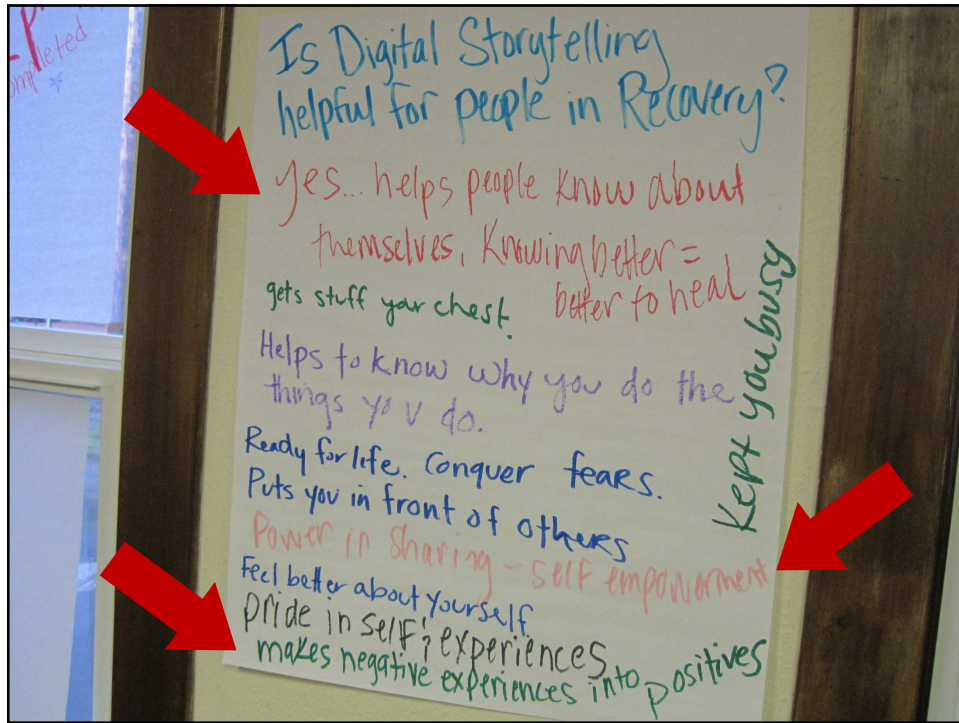 Is Digital Storytelling
helpful for people in Recovery?
yes... helps people know about
themselves, Knowing better =
better to heal
gets stuff your chest.
Helps to know why you do the
things you do.
Ready for life. Conquer fears.
Puts you in front of others
Power in Sharing - self empowerment
Feel better about yourself
pride in self & experiences
makes negative experiences into positives
Kept you busy